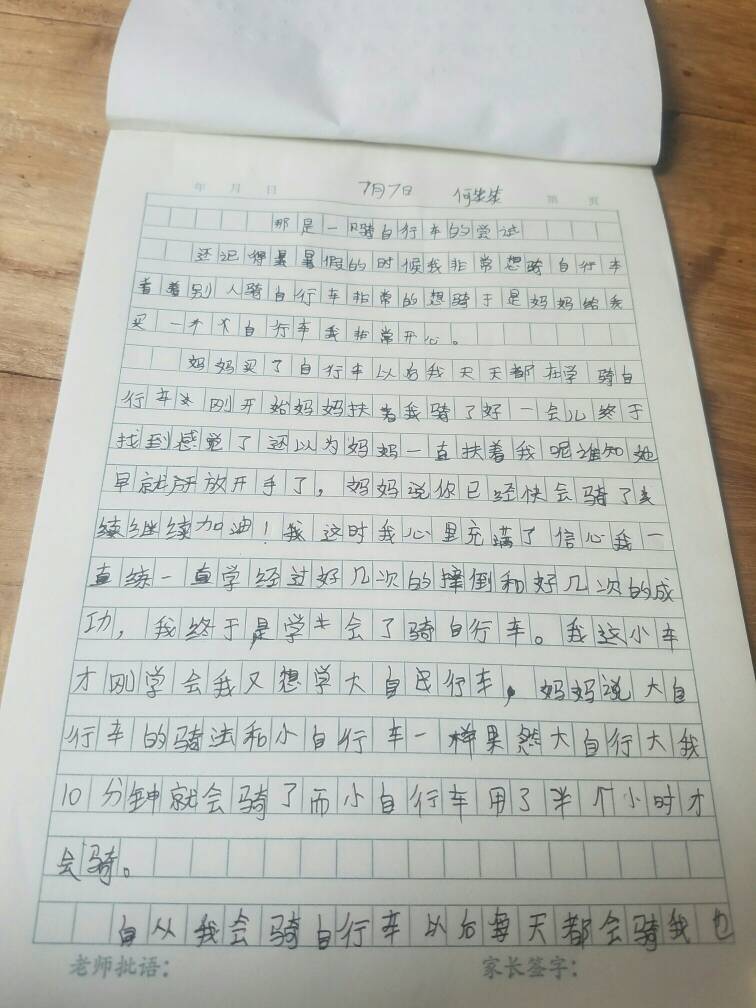 年 月 日 7月7日 何 第 页
那是一骑自行车的尝试
还记得暑假的时候我非常想骑自行车
看着别人骑自行车非常的想骑于是妈妈给我
买一个自行车我非常开心。
妈妈买了自行车以后我天天都在学骑自
行车刚开始妈妈扶着我骑了好一会儿终于
找到感觉了还以为妈妈一直扶着我呢谁知她
早就放开手了，妈妈说你已经快会骑了
继续加油！我这时我心里充满了信心我一
直练一直学经过好几次的摔倒和好几次的成
功，我终于是学会了骑自行车。我这小车
才刚学会我又想学大自行车，妈妈说大自
行车的骑法和小自行车一样果然大自行大我
10分钟就会骑了而小自行车用了半个小时才
会骑。
自从我会骑自行车以后每天都会骑我也
老师批语： 家长签字：